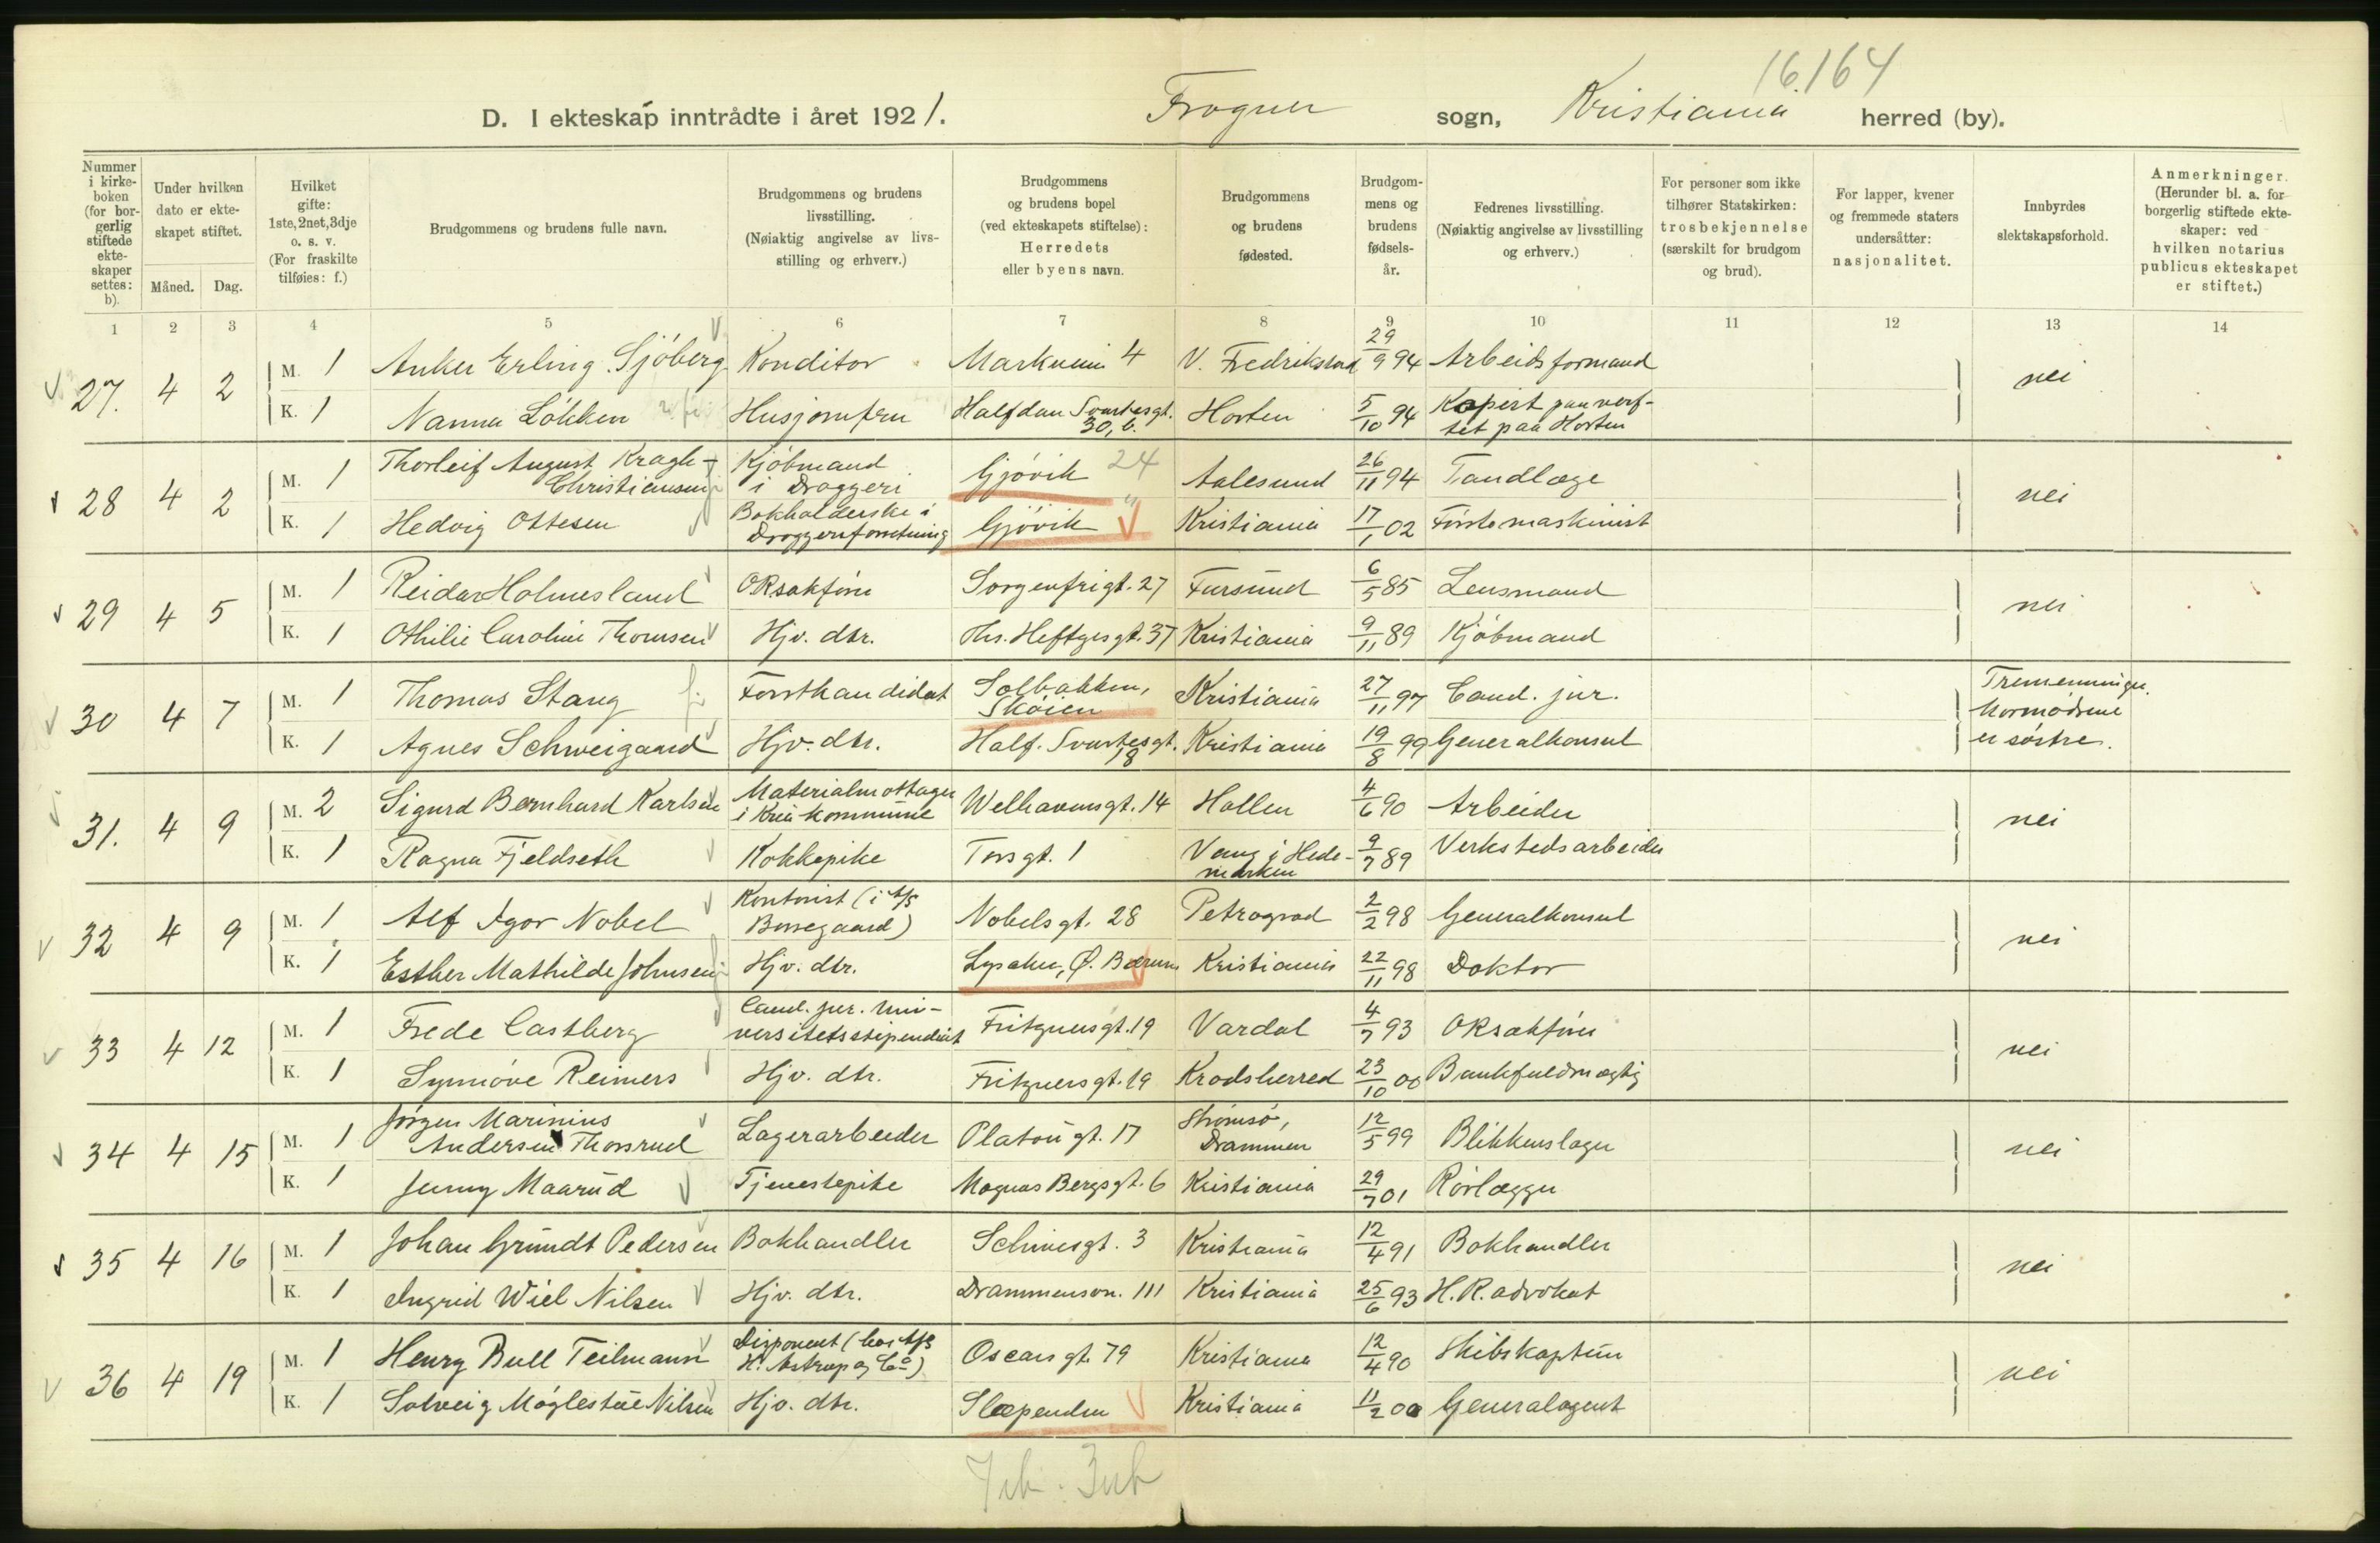 16164
D. I ekteskap inntrådte i året 1921. Frogner sogn, Kristiania herred (by).
Nummer i kirkeboken (for borgerlig stiftede ekteskaper settes: b).
Under hvilken dato er ekteskapet stiftet.
Måned. Dag.
Hvilket gifte: 1ste, 2net, 3dje o. s. v. (For fraskilte tilføies: f.)
Brudgommens og brudens fulle navn.
Brudgommens og brudens livsstilling. (Nøiaktig angivelse av livsstilling og erhverv.)
Brudgommens og brudens bopel (ved ekteskapets stiftelse): Herredets eller byens navn.
Brudgommens og brudens fødested.
Brudgommens og brudens fødselsår.
Fedrenes livsstilling. (Nøiaktig angivelse av livsstilling og erhverv.)
For personer som ikke tilhører Statskirken: trosbekjennelse (særskilt for brudgom og brud).
For lapper, kvener og fremmede staters undersåtter: nasjonalitet.
Innbyrdes slektskapsforhold.
Anmerkninger. (Herunder bl. a. for borgerlig stiftede ekteskaper: ved hvilken notarius publicus ekteskapet er stiftet.)
1 2 3 4 5 6 7 8 9 10 11 12 13 14
27. 4 2 M. 1 Anker Erling Sjöberg Konditor Markveien 4 V. Fredrikstad 29/9 94 Arbeidsformand nei
K. 1 Nanna Løkken Husjomfru Halfdan Svartesgt. 30, b. Horten 5/10 94 paa verftet paa Horten
28 4 2 M. 1 Thorleif August Kragh-Christiansen Kjøbmand i Droggeri Gjøvik 24 Aalesund 26/11 94 Tandlæge nei
K. 1 Hedvig Ottesen Bokholderske i Droggeriforretning Gjøvik " Kristiania 17/1 02 Förstemaskinist
29 4 5 M. 1 Reidar Holmesland ORsakfører Sorgenfrigt. 27 Farsund 6/5 85 Lensmand nei
K. 1 Othilie Caroline Thomsen Hjv. dtr. Ths. Heftyesgt. 37 Kristiania 9/11 89 Kjøbmand
30 4 7 M. 1 Thomas Stang Forstkandidat Solbakken, Skøien Kristiania 27/11 97 Cand. jur. Tremenninger. Mormødrene er søstre.
K. 1 Agnes Schweigaard Hjv. dtr. Half. Svartesgt. 18 Kristiania 19/8 99 Generalkonsul
31. 4 9 M. 2 Sigurd Bernhard Karlsen Materialmottager i Kria kommune Welhavensgt. 14 Hollen 4/6 90 Arbeider nei
K. 1 Ragna Fjeldseth Kokkepike Torsgt. 1 Vang i Hedemarken 9/7 89 Verkstedsarbeider
32 4 9 M. 1 Alf Igor Nobel Kontorist (i A/S Borregaard) Nobelsgt. 28 Petrograd 2/2 98 Generalkonsul nei
K. 1 Esther Mathilde Johnsen Hjv. dtr. Lysaker, Ø. Bærum Kristiania 22/11 98 Doktor
33 4 12 M. 1 Frede Castberg Cand. jur. universitetsstipendiat Fritznersgt. 19 Vardal 4/7 93 ORsakfører nei
K. 1 Synnöve Reimers Hjv. dtr. Fritznersgt. 19 Krødsherred 23/10 00 Bankfuldmægtig
34 4 15 M. 1 Jörgen Marinius Andersen Thorsrud Lagerarbeider Platoügt. 17 Strömsö, Drammen 12/5 99 Blikkenslager nei
K. 1 Jenny Maarud Tjenestepike Magnus Bergsgt. 6 Kristiania 29/7 01 Rørlægger
35 4 16 M. 1 Johan Gründt Pedersen Bokhandler Schivesgt. 3 Kristiania 12/4 91 Bokhandler nei
K. 1 Ingrid Wiel Nilsen Hjv. dtr. Drammensvn. 111 Kristiania 25/6 93 H.R. advokat
36 4 19 M. 1 Henry Bull Teilmann Disponent (hos A/S H. Astrup og Co) Oscarsgt. 79 Kristiania 12/4 90 Skibskaptein nei
K. 1 Solveig Møglestue Nilsen Hjv. dtr. Slependen Kristiania 11/2 00 Generalagent